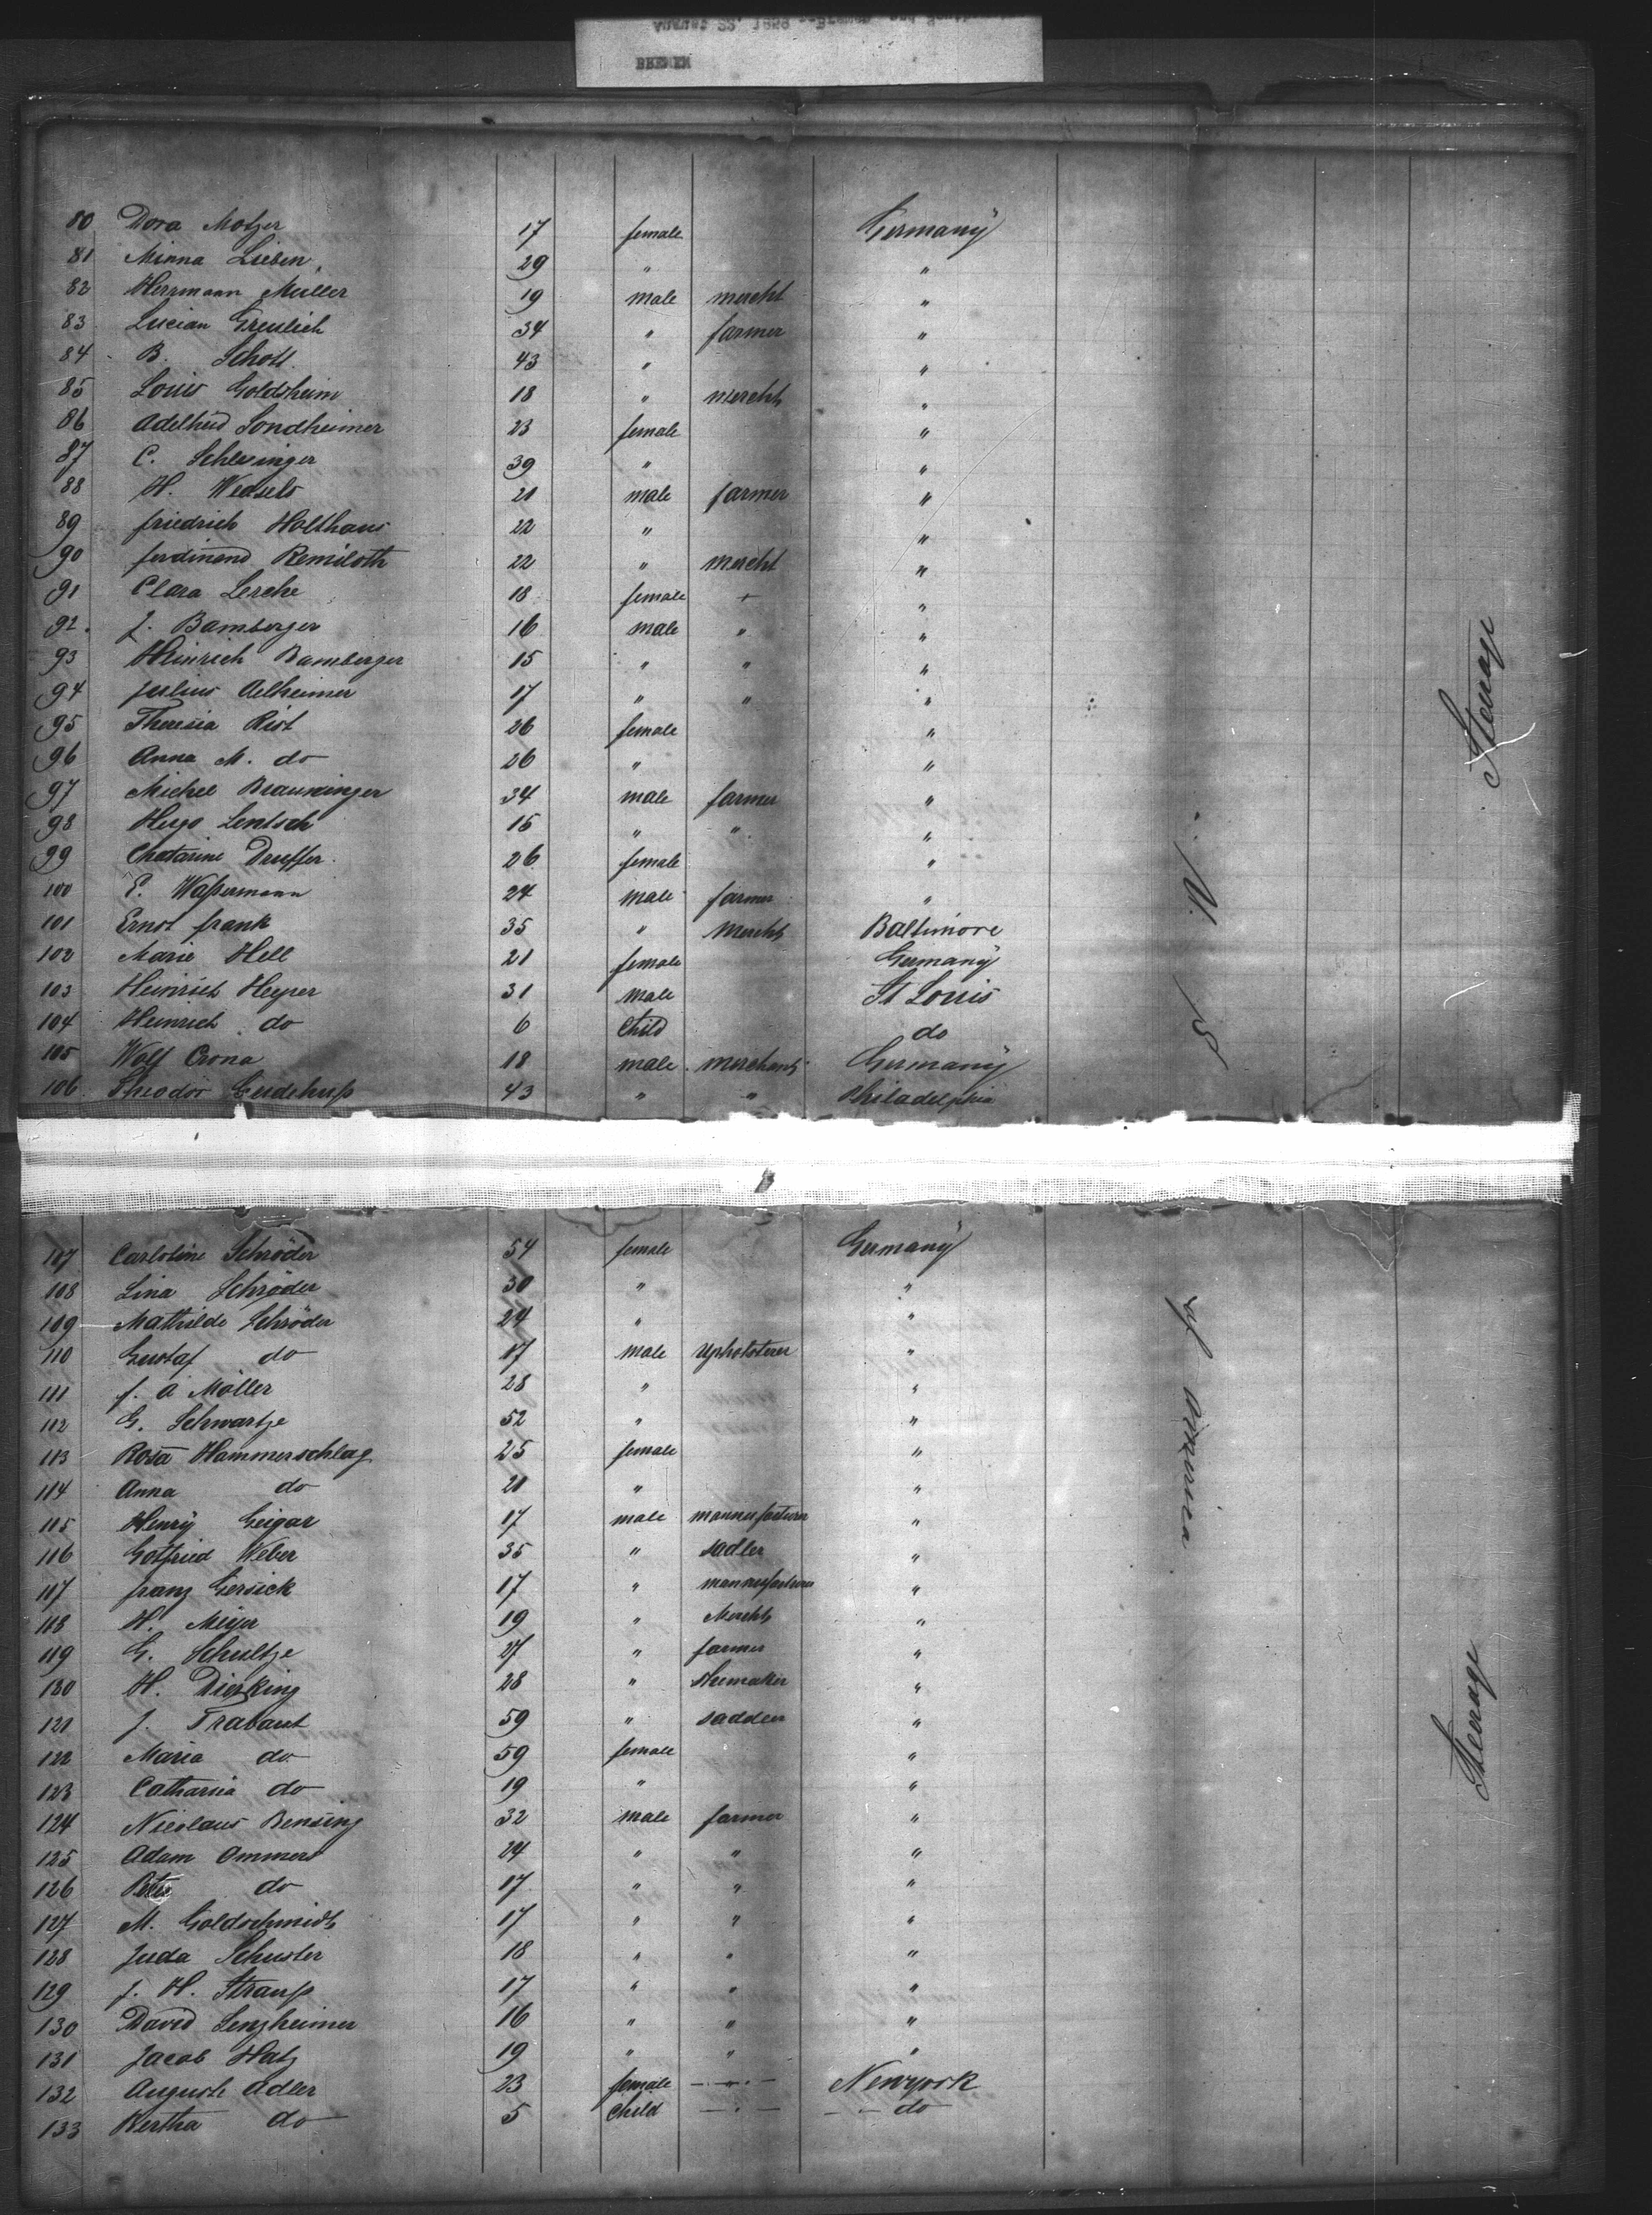 BREMEN
80 Dora Motzer 17 female Germany
81 Minna Lieben 29 " "
82 Herrmann Muller 19 male mercht "
83 Lucian Greulich 34 " farmer "
84 B. Scholl 43 " "
85 Louis Goldsheim 18 " mercht "
86 Adelheid Sondheimer 23 female "
87 C. Schlesinger 39 " "
88 H. Wessels 21 male farmer "
89 friedrich Holthaus 22 " "
90 ferdinand Remiloth 22 " mercht "
91 Clara Lerche 18 female + "
92. J. Bamberger 16 male " "
93 Heinrich Bamberger 15 " " "
94 Julius Aelheimer 17 " " "
95 Theresia Rist 26 female "
96 Anna M. do 26 " "
97 Michel Brauninger 34 male farmer "
98 Hugo Lentsch 15 " " "
99 Chatarine Druffer 26 female "
100 E. Waßermann 24 male farmer "
101 Ernst frank 35 " mercht Baltimore
102 Marie Hell 21 female Germany
103 Heinrich Heyer 31 male St Louis
104 Heinrich do 6 Child do
105 Wolf Crona 18 male merchant Germany
106 Theodor 43 " " Philadelphia
U. S.
Steerage
107 Carlotine Schröder 54 female Germany
108 Lina Schröder 30 " "
109 Mathilde Schröder 24 " "
110 Gustaf do 17 male Upholsterer "
111 f. A Möller 28 " "
112 G. Schwartze 52 " "
113 Rosa Hammerschlag 25 female "
114 Anna do 21 " "
115 Henry Geigar 17 male mannufacturer "
116 Gotfried Weber 35 " sadler "
117 franz Gersick 17 " mannufacturer "
118 H. Meyer 19 " Mercht "
119 G. Schultze 27 " farmer "
130 H. Dierking 28 " shumaker "
121 J. Trabant 59 " saddler "
122 Maria do 59 female "
123 Catharina do 19 " "
124 Nicolaus Bensing 32 male farmer "
125 Adam Ommert 24 " " "
126 Peter do 17 " " "
127 M. Goldschmidt 17 " " "
128 Juda Schuster 18 " " "
129 J. H. Strauß 17 " " "
130 David Lenzheimer 16 " " "
131 Jacob Hatz 19 " " "
132 Auguste Adler 23 female " Newyork
133 Bertha do 5 Child " do
of America
Steerage